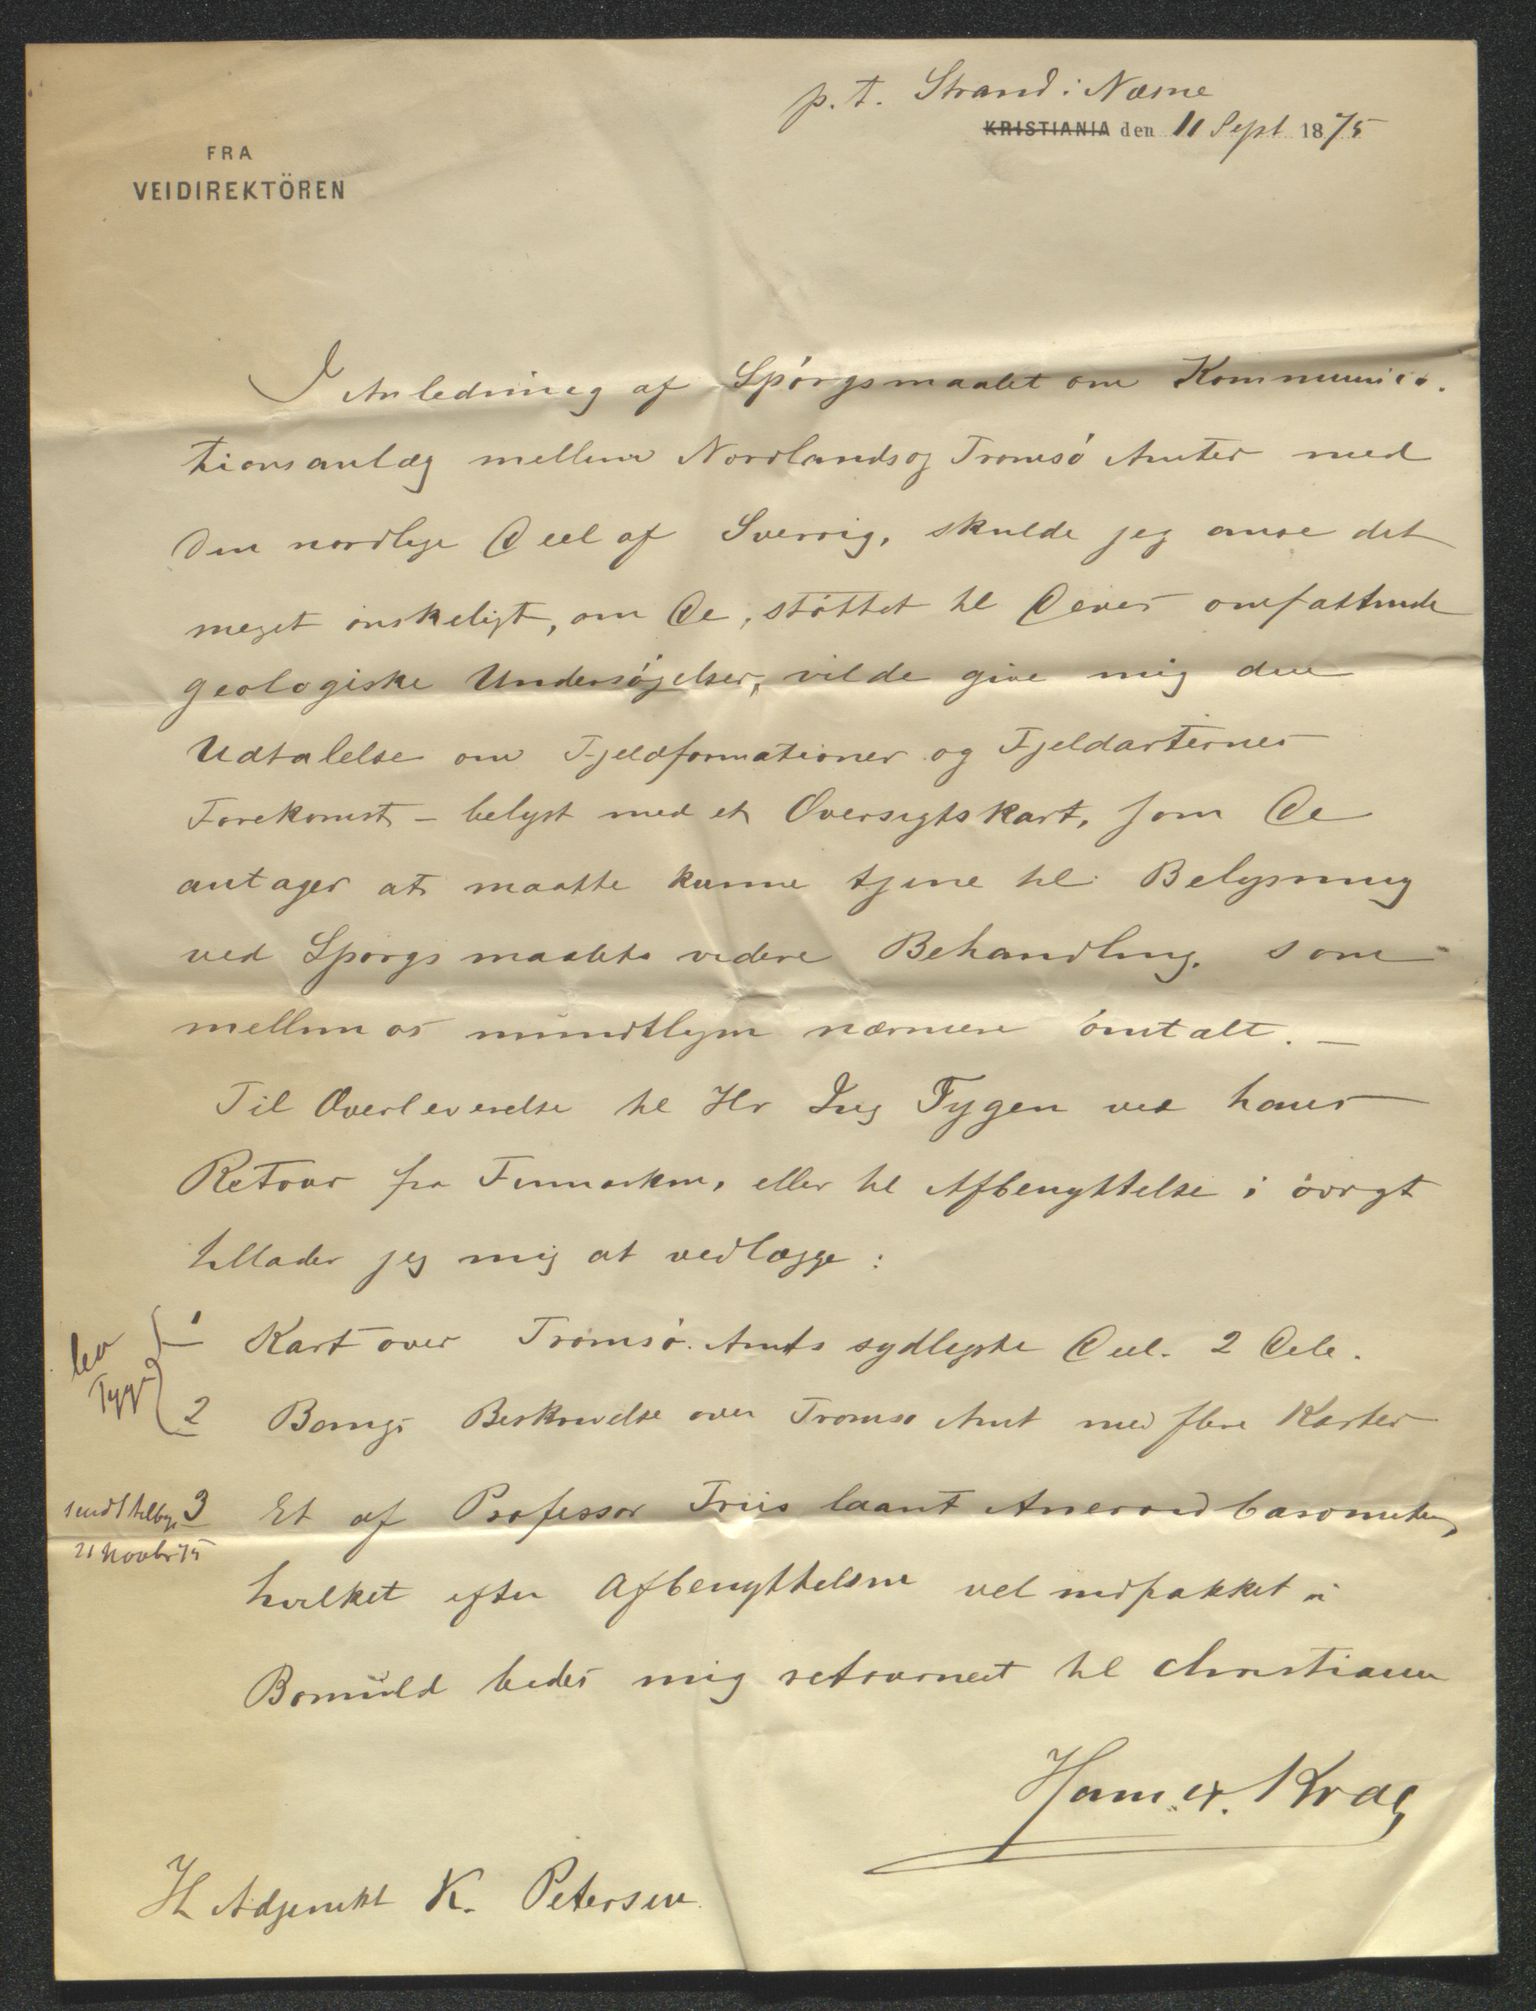 p. t. Strand i Næsne
KRISTIANIA den 11 Sept 1875
FRA
VEIDIREKTÖREN
I Anledning af Spörgsmaalet om Kommunica-
tionsanlæg mellem Nordlands og Tromsö Amter med
den nordlige Deel af Sverrig, skulde jeg anse det
meget önskeligt, om De, stöttet til Deres omfattende
geologiske Undersögelser, vilde give mig den
Udtalelse om Fjeldformationer og Fjeldarternes
Forekomst – belyst med et Oversigtskart, som De
antager at maatte kunne tjene til Belysning
ved Spörgsmaalets videre Behandling, som
mellem os mundtligen nærmere omtalt. –
Til Overleverelse til Hr Ing Tygen ved hans
Retour fra Finmarken, eller til Afbenyttelse i övrigt
tillader jeg mig at vedlægge:
1 Kart over Tromsö Amts sydligste Deel. 2 Dele.
lev
Tygen
2 Bangs Beskrivelse over Tromsö Amt med flere Karter
3 Et af Professor Friis laant Aneroidbarometer,
sendt tilbage
21 Novbr 75
hvilket efter Afbenyttelsen vel indpakket i
Bomuld bedes mig retourneret til Christiania
Hans H. Krag
Hr Adjunkt K. Petersen